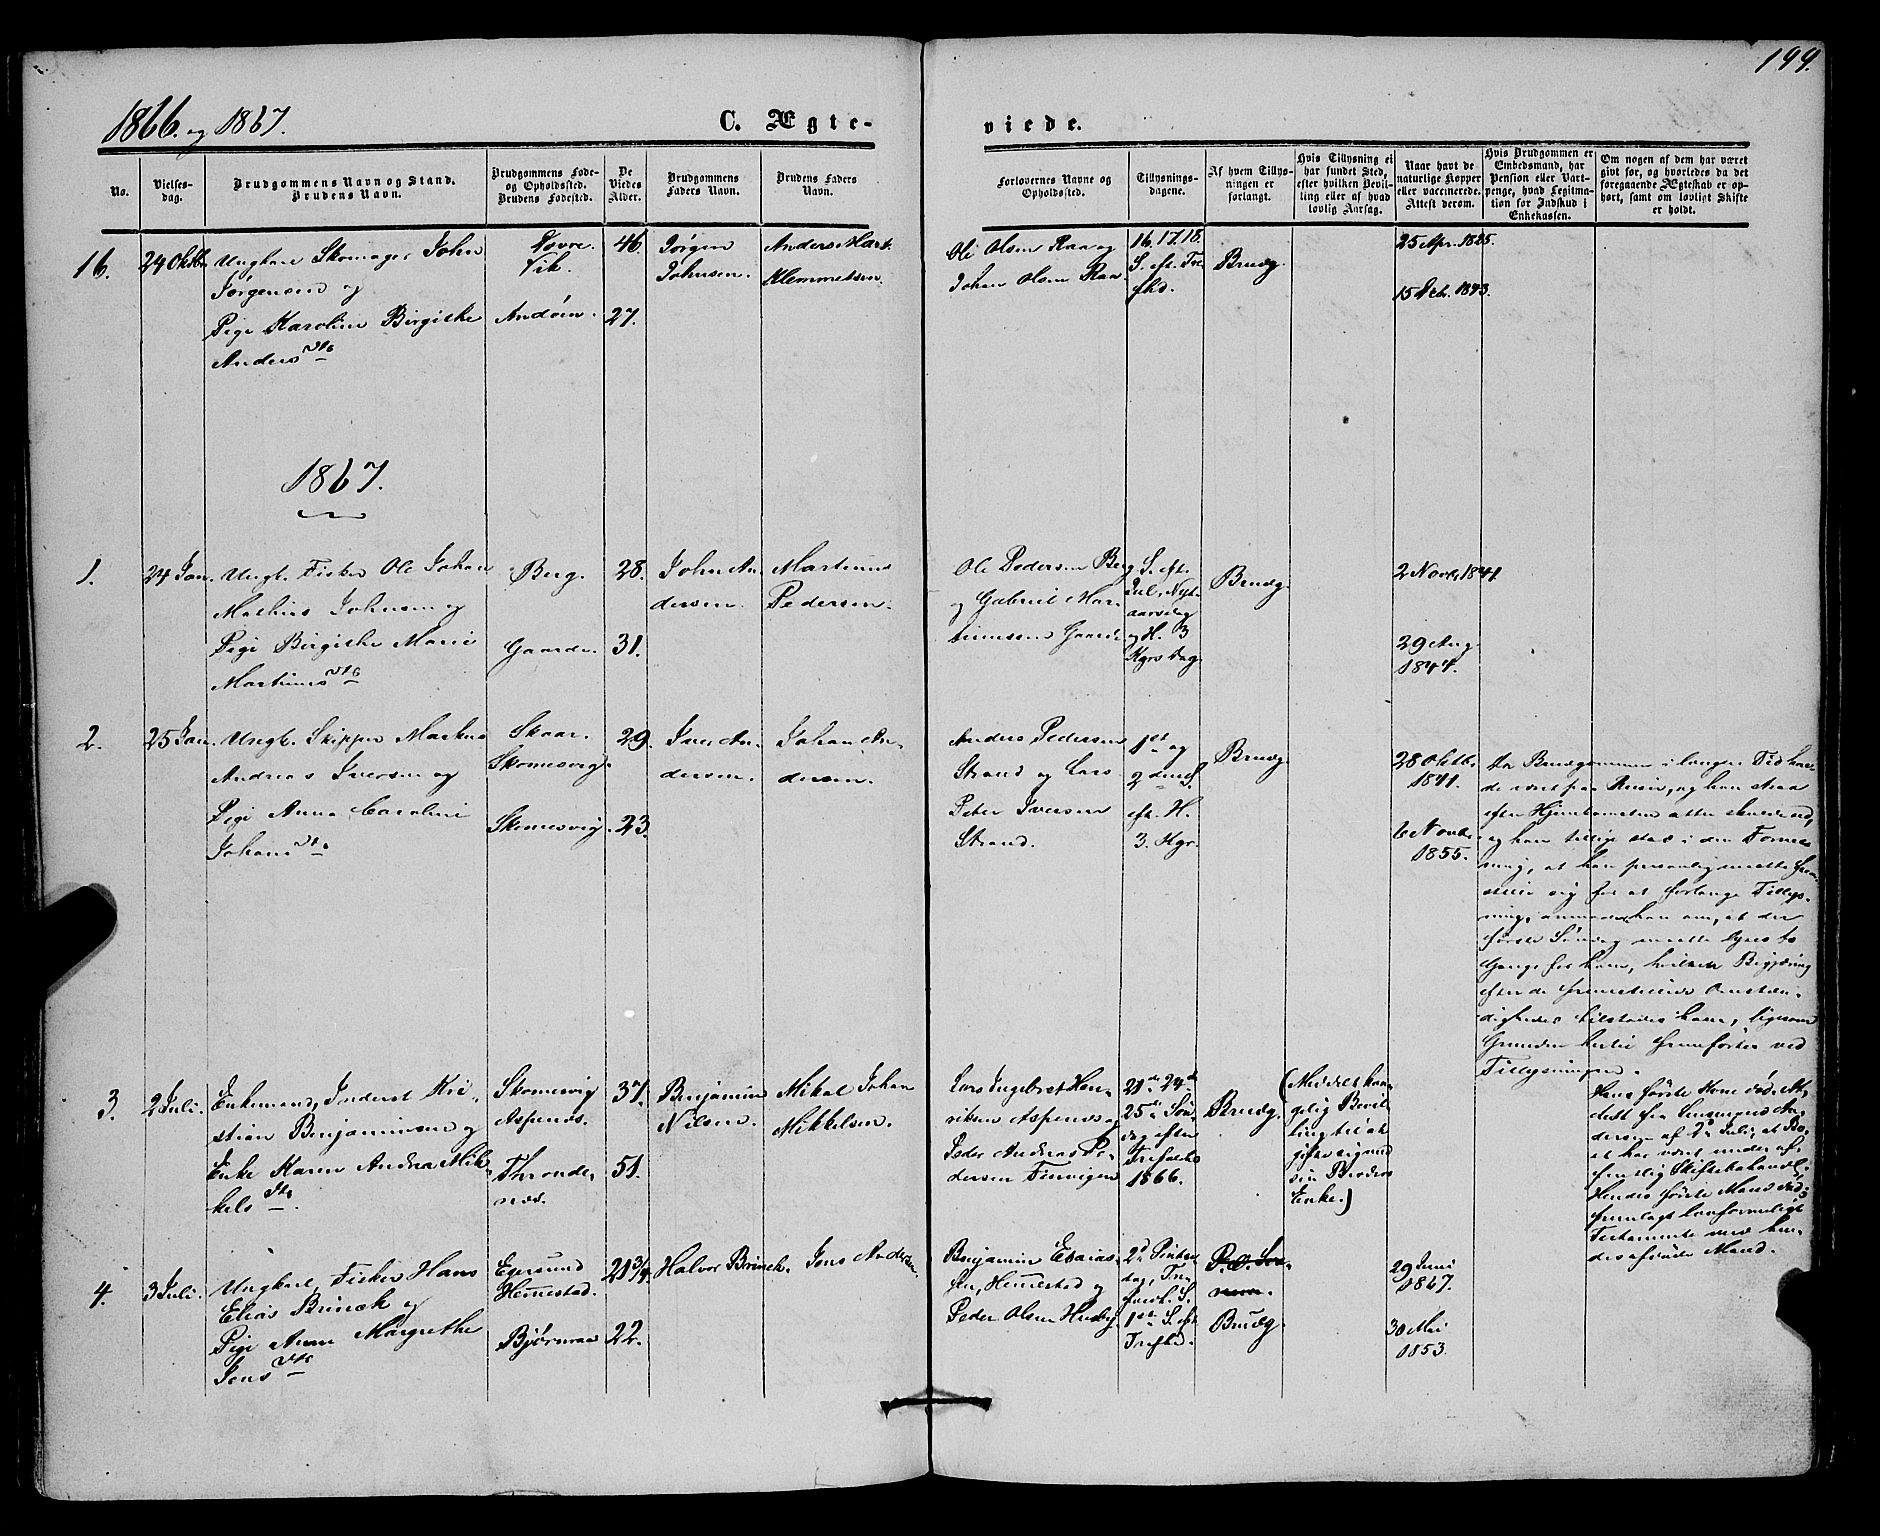 199.
1866. og 1867.
C. Ægte-
viede.
No.
Vielses-
dag.
Brudgommens Navn og Stand.
Brudens Navn.
Brudgommens Føde-
og Opholdssted.
Brudens Fødested.
De
Viedes
Alder.
Brudgommens
Faders Navn.
Brudens Faders
Navn.
Forlovernes Navne og
Opholdssted.
Tillysnings-
dagene.
Af hvem Tillys-
ningen er
forlangt.
Hvis Tillysning ei
har fundet Sted,
efter hvilken Bevil-
ling eller af hvad
lovlig Aarsag.
Naar havt de
naturlige Kopper
eller vaccinerede.
Attest derom.
Hvis Brudgommen er
Embedsmand, har
Pension eller Vart-
penge, hvad Legitima-
tion for Indskud i
Enkekassen.
Om nogen af dem har været
gift før, og hvorledes da det
foregaaende Ægteskab er op-
hørt, samt om lovligt Skifte
er holdt.
16.
24 Oktbr.
Ungkarl Skomager John
Jørgensen og
Pige Karoline Birgithe
Andersdtr
Dovre.
Vik.
Andøen.
46.
27.
Jørgen
Johnsen.
Anders Mart.
Klemmetsen.
Ole Olsen Raa og
Johan Olsen Raa
16. 17. 18.
S. eft. Tre
fhd.
Brudg.
25 Apr. 1825.
15 1843.
1867.
1.
24 Jan.
Ungk. Fisker Ole Johan
Mathias Johnsen og
Pige Birgithe Marie
Martinusdtr
Berg.
Gaarde.
28.
31.
John An-
dersen.
Martinus
Pedersen.
Ole Pedersen Berg
og Gabriel Mar-
tinussen Gaarde
S. eft.
Jul, Nyt-
aarsdag
og H. 3
Kgrs Dag.
Brudg.
2 Novbr. 1841.
29 Aug
1844.
2.
25 Jan.
Ungk. Skipper Markus
Andreas Iversen og
Pige Anna Caroline
Johansdtr
Skaar.
Skomesvig.
Skomesvig.
29.
23.
Iver An-
dersen.
Johan An-
dersen.
Anders Pedersen
Strand og Lars
Peter Iversen
Strand.
1ste og
2den S.
eft. H.
3. Kgr.
Brudg.
28 Oktbr.
1841.
6 Novbr.
1855.
Da Brudgommen i længere Tid hav-
de været paa Reise, og han straa
efter Hjemkomsten atter skulde ud,
og han tillige stod i den Formee-
ning, at han personlig maatte frem-
stille sig for at forlange Tillys-
ning, anmodede han om, at der
første Søndag maatte lyses to
Gange for ham, hvilken Begjæring
efter de fremstillede Omstæn-
digheder tilstodes ham, ligesom
Grunden hertil fremførtes ved
Tillysningen.
3.
2 Juli.
Enkemand, Inderst Kri-
stian Benjaminsen og
Enke Karen Andrea Mik-
kelsdtr.
Skomesvig
Aspenæs.
Thronde-
næs.
37.
51.
Benjamin
Nilsen.
Mikal Johan
Mikkelsen.
Lars Ingebret Hen-
riksen Aspenæs og
Peder Andreas Pe-
dersen Finvigen
21de 24de
25de Søn-
dag efter
Trefoldh.
1866.
Brudg.
(Meddelt kon-
gelig Bevil-
ling til at
gifte sig med
sin Broders
Enke.)
Hans første Kone død. At-
test fra Lensmand An-
dersen af 2 Juli, at Bo-
et har været under of-
fentlig Skiftebehandl.
Hendes første Mand død;
fremlagt lovformeligt
Testamente med hen-
des afdøde Mand.
4.
3 Juli.
Ungkarl, Fisker Hans
Elias Brinck og
Pige Anne Margrethe
Jensdtr
Egersund
Hemestad.
Bjørnraa
21 3/4.
22.
Halvor Brinck.
Jens Andersen.
Benjamin Esaias-
sen, Hemestad og
Peder Olsen Husby.
2d Pintse-
dag, Tre-
foldh. S.
1ste S. eft.
Trefhd.
Brudg.
29 Juni
1867.
30 Mai
1853.